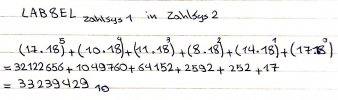 LABSEL zahlsys1 in Zahlsys2
(17.18⁵) + (10.18⁴) + (11.18³) + (8.18²) + (14.18¹) + (17.18⁰)
= 32122656 + 1049760 + 64152 + 2592 + 252 + 17
= 33239429₁₀